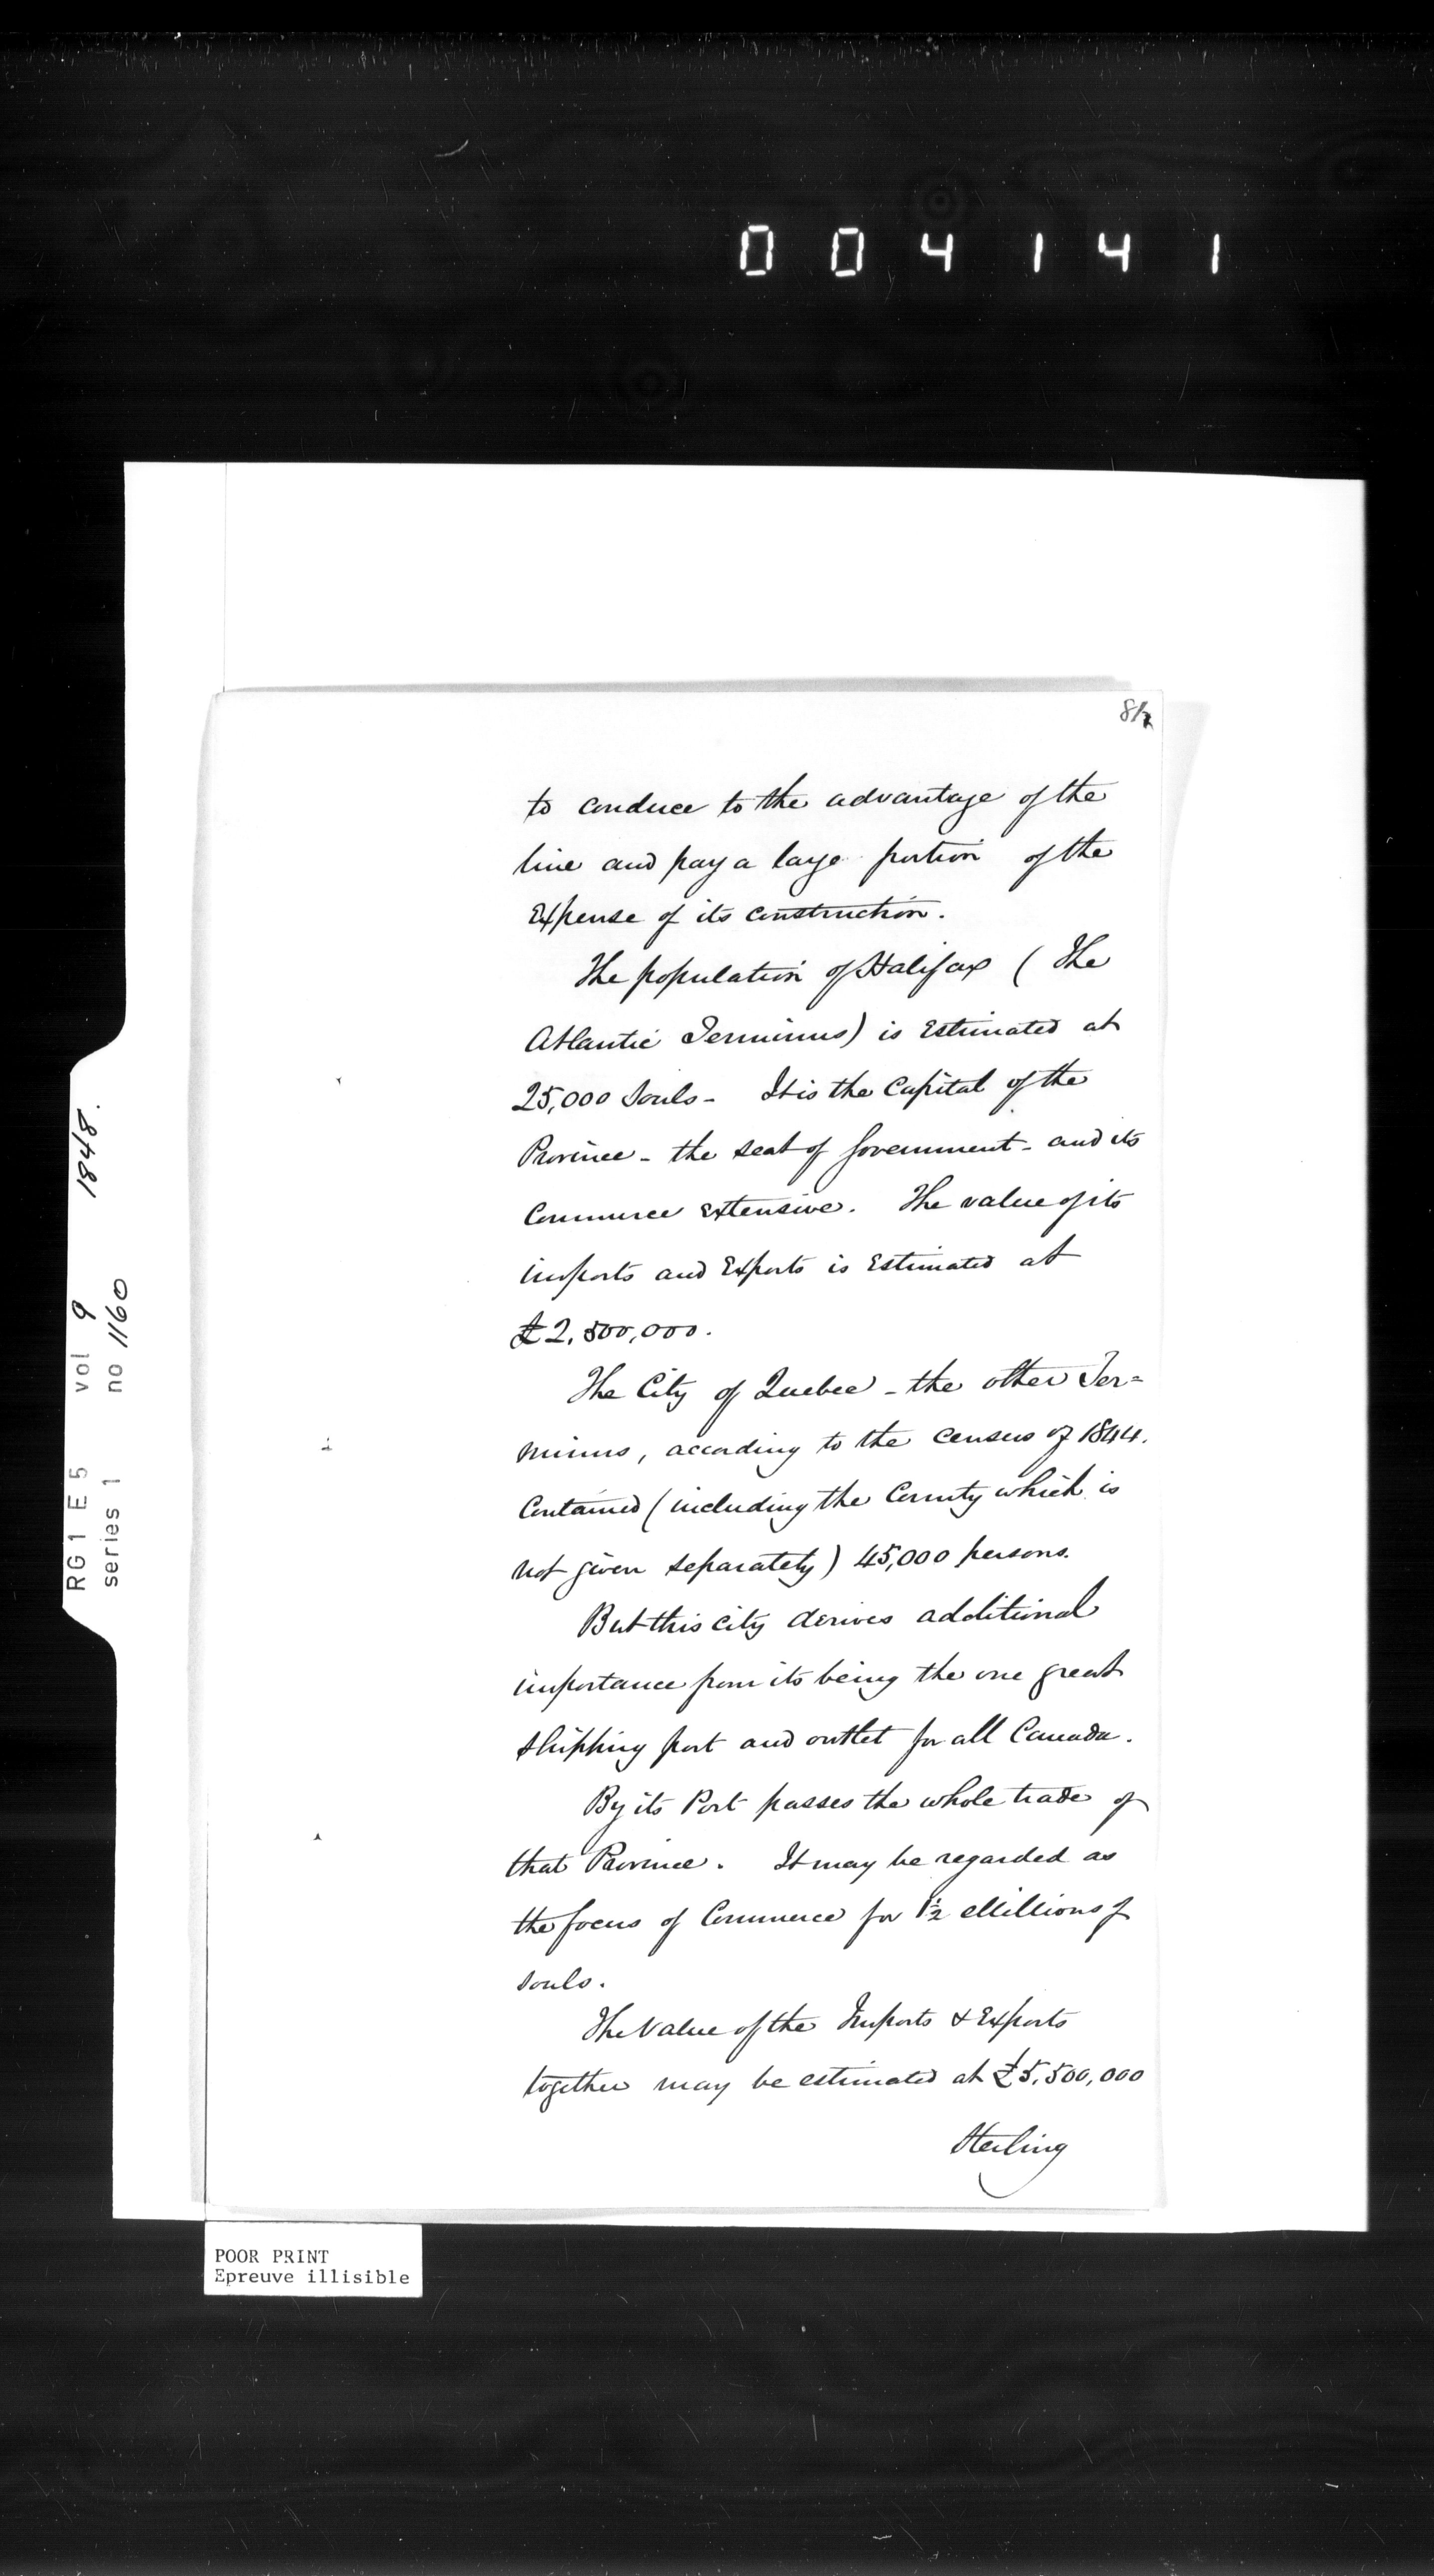 004141
to conduce to the advantage of the
line and pay a large portion of the
Expense of its construction.
The population of Halifax (The
Atlantic Terminus) is Estimated at
25,000 Souls - It is the Capital of the
Province - the seat of Government - and its
Commerce extensive. The value of its
imports and Exports is Estimated at
£2,500,000.
The City of Quebec - the other Ter=
minus, according to the Census of 1844.
Contained (including the County which is
not given separately) 45,000 persons.
But this city derives additional
importance from its being the one great
shipping port and outlet for all Canada.
By its Port passes the whole trade of
that Province. It may be regarded as
the focus of Commerce for 1½ Millions of
souls.
The Value of the Imports & Exports
together may be estimated at £5,500,000
Sterling
RG1 E5 vol 9 1848.
series 1 no 1160
POOR PRINT
Epreuve illisible